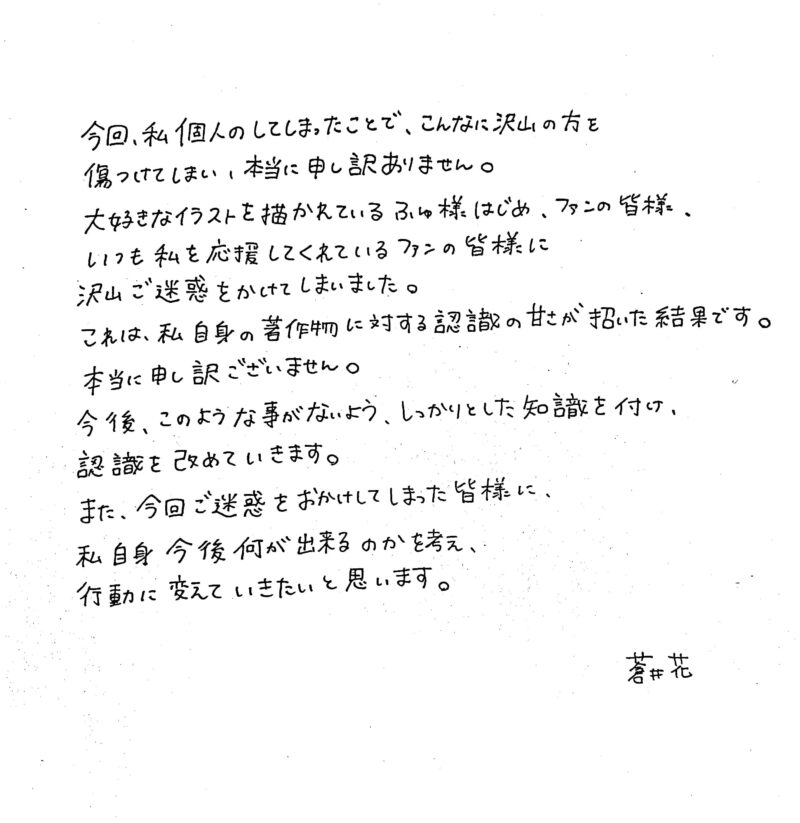 今回、私個人のしてしまったことで、こんなに沢山の方を
傷つけてしまい、本当に申し訳ありません。
大好きなイラストを描かれているふゅ様はじめ、ファンの皆様、
いつも私を応援してくれているファンの皆様に
沢山ご迷惑をかけてしまいました。
これは、私自身の著作物に対する認識の甘さが招いた結果です。
本当に申し訳ございません。
今後、このような事がないよう、しっかりとした知識を付け、
認識を改めていきます。
また、今回ご迷惑をおかけしてしまった皆様に、
私自身今後何が出来るのかを考え、
行動に変えていきたいと思います。
蒼井花